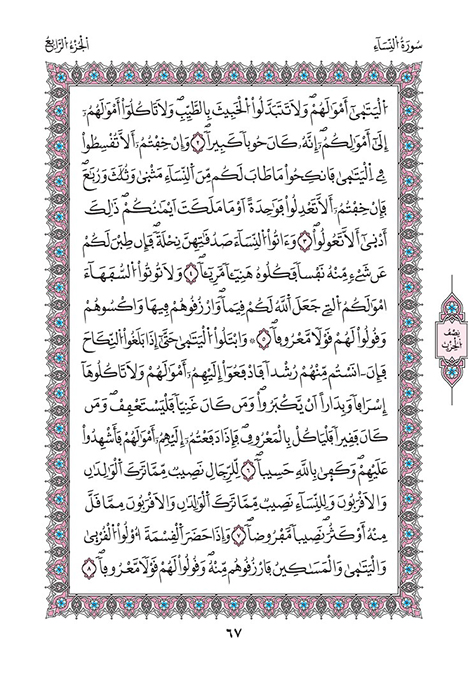 سُورَةُ النِّسَآءِ
الجُزْءُ الرَّابِعُ
اَ۬لْيَتَٰم۪ىٰٓ أَمْوَٰلَهُمْۖ وَلَا تَتَبَدَّلُواْ اُ۬لْخَبِيثَ بِالطَّيِّبِۖ وَلَا تَاكُلُوٓاْ أَمْوَٰلَهُمُۥٓ
إِلَىٰٓ أَمْوَٰلِكُمُۥٓۖ إِنَّهُۥ كَانَ حُوباٗ كَبِيراٗۖ ٢ وَإِنْ خِفْتُمُۥٓ أَلَّا تُقْسِطُواْ
فِے اِ۬لْيَتَٰم۪ىٰ فَانكِحُواْ مَا طَابَ لَكُم مِّنَ اَ۬لنِّسَآءِ مَثْن۪ىٰ وَثُلَٰثَ وَرُبَٰعَۖ
فَإِنْ خِفْتُمُۥٓ أَلَّا تَعْدِلُواْ فَوَٰحِدَةً اَوْ مَا مَلَكَتَ اَيْمَٰنُكُمْۖ ذَٰلِكَ
أَدْن۪ىٰٓ أَلَّا تَعُولُواْۖ ٣ وَءَاتُواْ اُ۬لنِّسَآءَ صَدُقَٰتِهِنَّ نِحْلَةٗۖ فَإِن طِبْنَ لَكُمْ
عَن شَےْءٖ مِّنْهُ نَفْساٗ فَكُلُوهُ هَنِيٓـٔاٗ مَّرِيٓـٔاٗۖ ٤ وَلَا تُوتُواْ اُ۬لسُّفَهَآءَ
امْوَٰلَكُمُ اُ۬لتِے جَعَلَ اَ۬للَّهُ لَكُمْ قِيَماٗۖ وَارْزُقُوهُمْ فِيهَا وَاكْسُوهُمْ
وَقُولُواْ لَهُمْ قَوْلاٗ مَّعْرُوفاٗۖ ٥ ۞ وَابْتَلُواْ اُ۬لْيَتَٰم۪ىٰ حَتَّىٰٓ إِذَا بَلَغُواْ اُ۬لنِّكَاحَ
فَإِنَ اٰنَسْتُم مِّنْهُمْ رُشْداٗ فَادْفَعُوٓاْ إِلَيْهِمُۥٓ أَمْوَٰلَهُمْۖ وَلَا تَاكُلُوهَآ
إِسْرَافاٗ وَبِدَاراً اَنْ يَّكْبَرُواْۖ وَمَن كَانَ غَنِيّاٗ فَلْيَسْتَعْفِفْۖ وَمَن
كَانَ فَقِيراٗ فَلْيَاكُلْ بِالْمَعْرُوفِۖ فَإِذَا دَفَعْتُمُۥٓ إِلَيْهِمُۥٓ أَمْوَٰلَهُمْ فَأَشْهِدُواْ
عَلَيْهِمْۖ وَكَف۪ىٰ بِاللَّهِ حَسِيباٗۖ ٦ لِّلرِّجَالِ نَصِيبٞ مِّمَّا تَرَكَ اَ۬لْوَٰلِدَٰنِ
وَالَاقْرَبُونَ وَلِلنِّسَآءِ نَصِيبٞ مِّمَّا تَرَكَ اَ۬لْوَٰلِدَٰنِ وَالَاقْرَبُونَ مِمَّا قَلَّ
مِنْهُ أَوْ كَثُرَۖ نَصِيباٗ مَّفْرُوضاٗۖ ٧ وَإِذَا حَضَرَ اَ۬لْقِسْمَةَ أُوْلُواْ اُ۬لْقُرْب۪ىٰ
وَالْيَتَٰم۪ىٰ وَالْمَسَٰكِينُ فَارْزُقُوهُم مِّنْهُۖ وَقُولُواْ لَهُمْ قَوْلاٗ مَّعْرُوفاٗۖ ٨
نِصْف
الحِزْب
٦٧